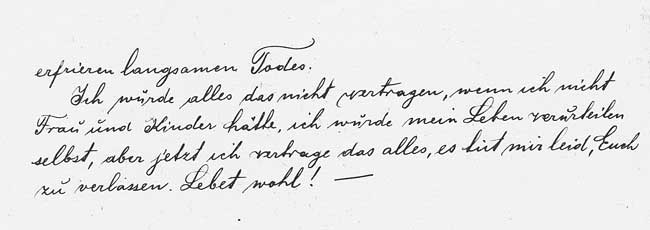 erfrieren langsamen Todes.
Ich würde alles das nicht vertragen, wenn ich nicht
Frau und Kinder hätte, ich würde mein Leben verurteilen
selbst, aber jetzt ich vertrage das alles, es tut mir leid, Euch
zu verlassen. Lebet wohl! —